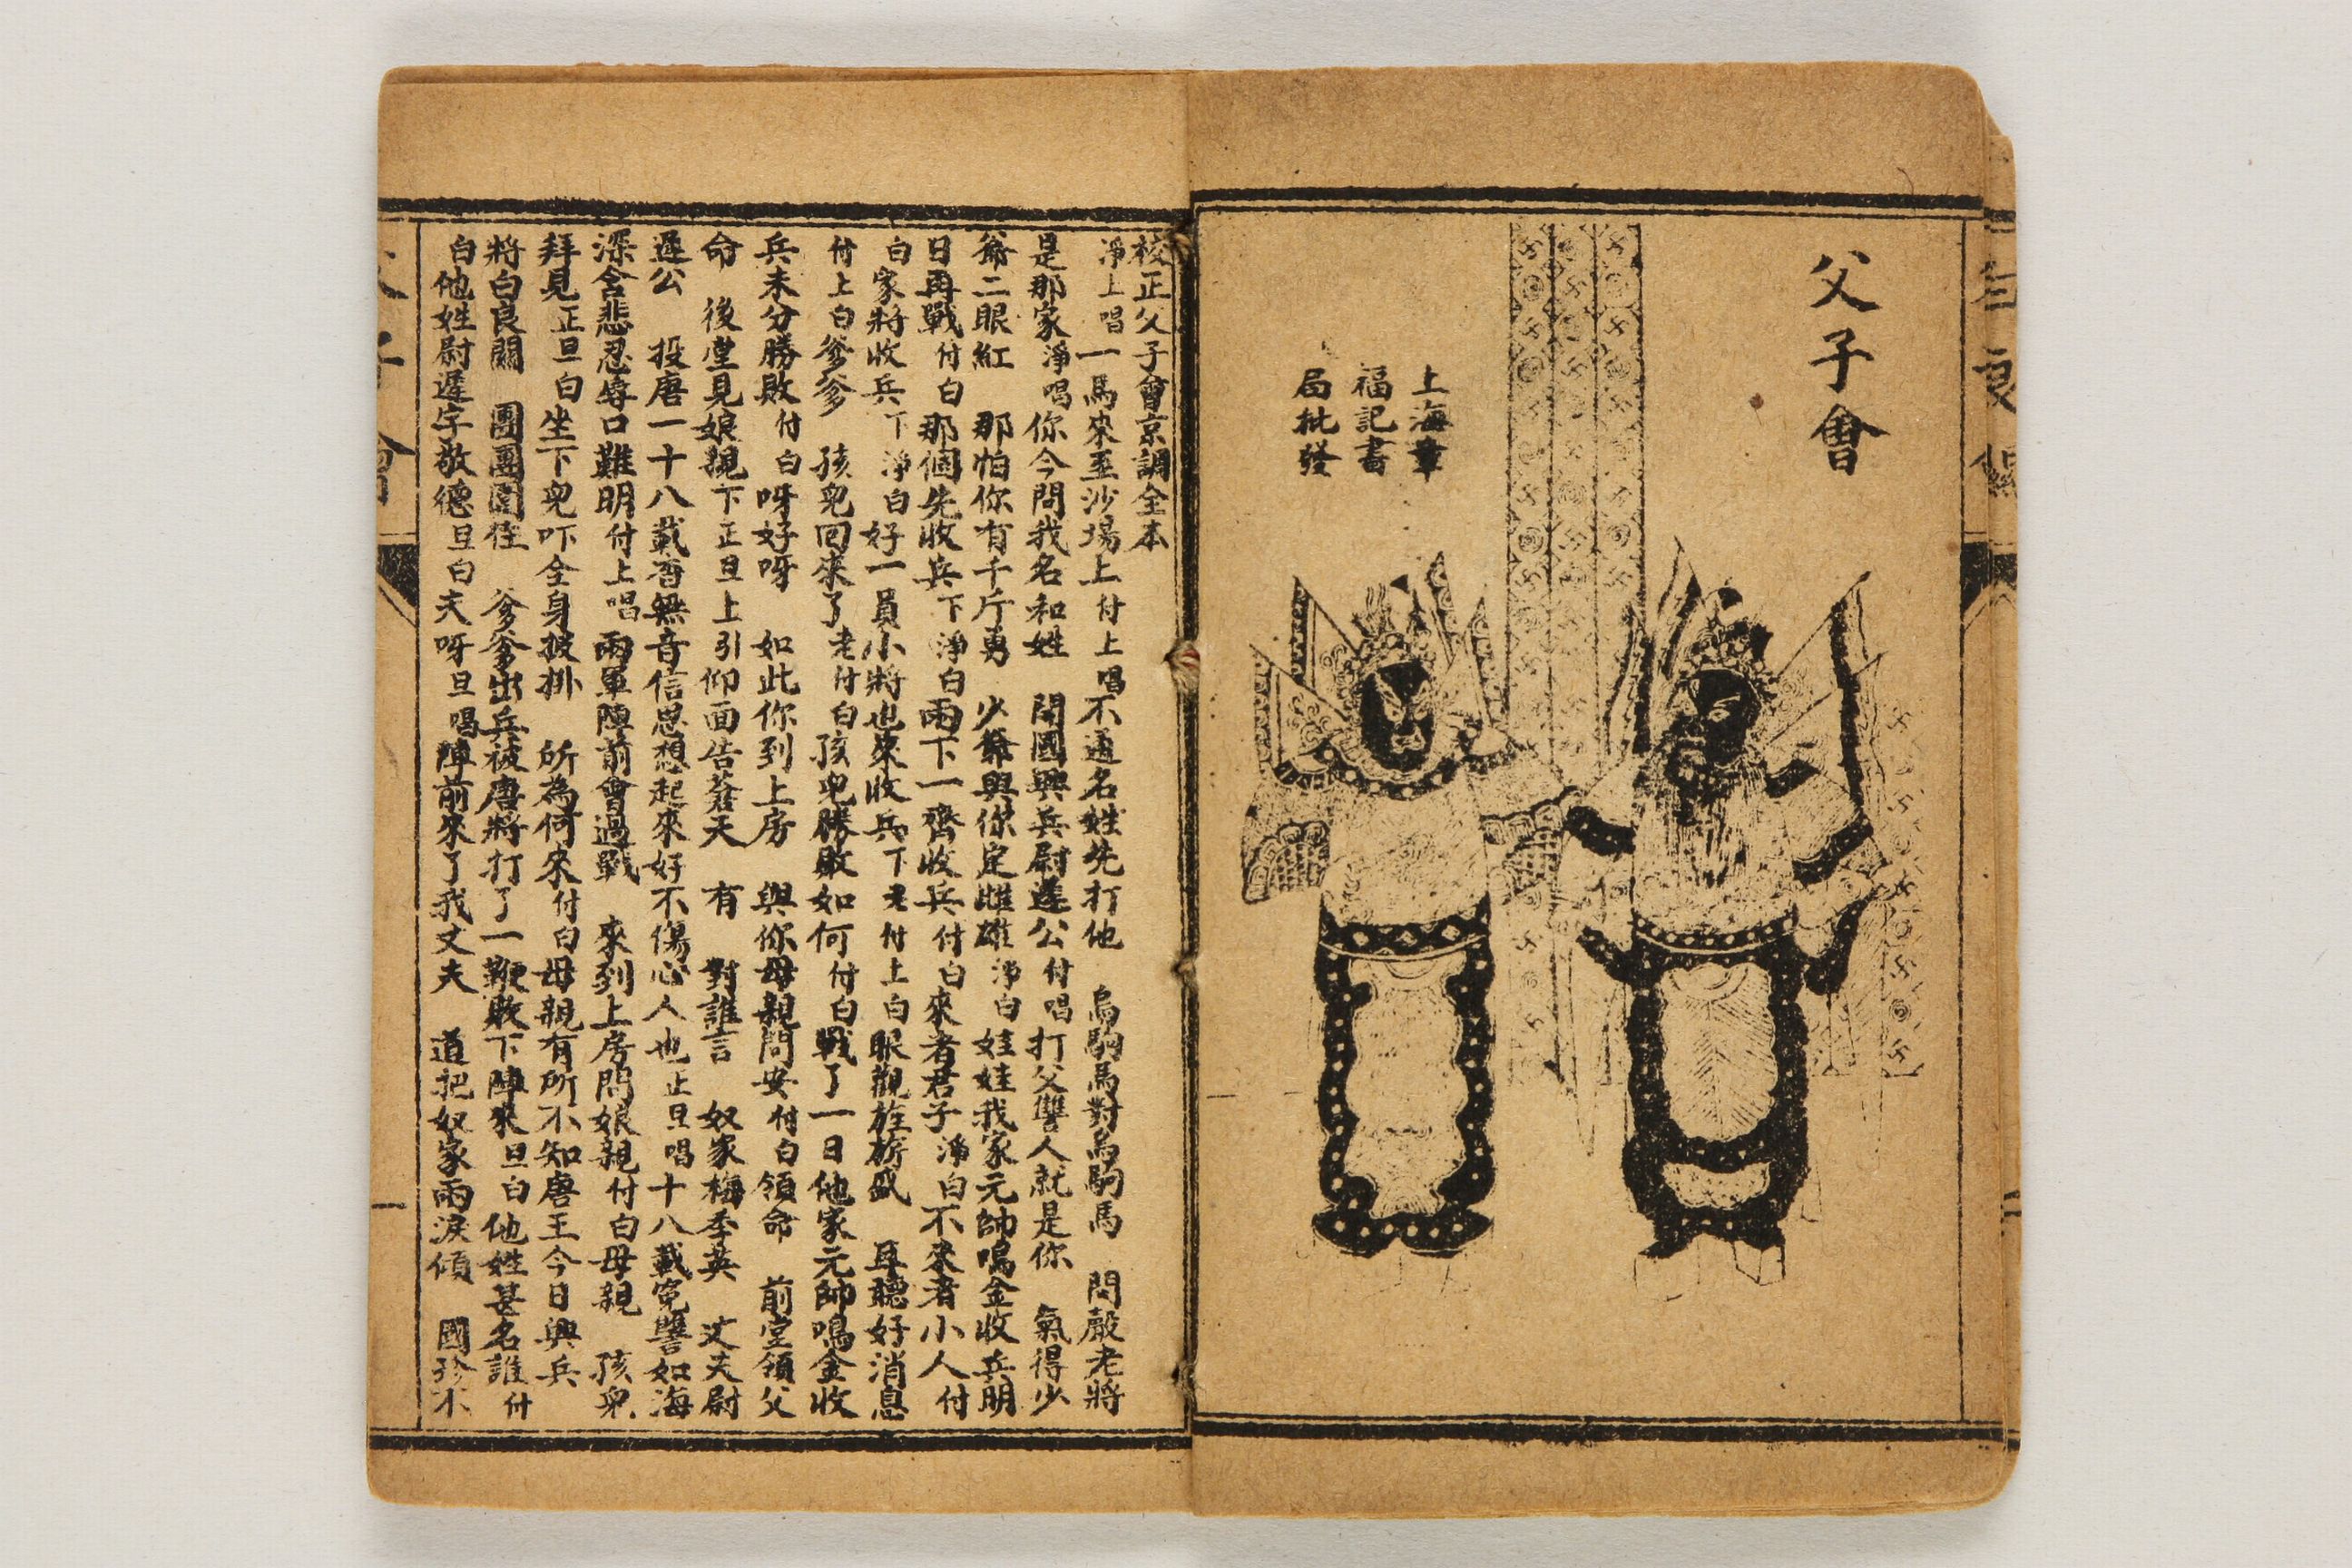 父子會
上海章
福記書
局批發
校正父子會京調全本
淨上唱一馬來至沙場上付上唱不通名姓先打他　烏駒馬對烏駒馬　問嚴老將
是那家淨唱你今問我名和姓　開國興兵尉遲公付唱打父讐人就是你　氣得少
爺二眼紅　那怕你有千斤勇　少爺與你定雌雄淨白娃娃我家元帥鳴金收兵明
日再戰付白那個先收兵下淨白兩下一齊收兵付白來者君子淨白不來者小人付
白家將收兵下淨白好一員小將也來收兵下老付上白眼觀旌旂盛　耳聽好消息
付上白爹爹　孩兒回來了老付白孩兒勝敗如何付白戰了一日他家元帥鳴金收
兵未分勝敗付白呀好呀　如此你到上房　與你母親問安付白領命　前堂領父
命　後堂見娘親下正旦上引仰面告蒼天　有　對誰言　奴家梅秀英　丈夫尉
遲公　投唐一十八載杳無音信思想起來好不傷心人也正旦唱十八載寃讐如海
深含悲忍辱口難明付上唱兩軍陣前會過戰　來到上房問娘親付白母親　孩兒
拜見正旦白坐下兒吓全身披掛　所為何來付白母親有所不知唐王今日興兵
將白良關　團團圍住　爹爹出兵被唐將打了一鞭敗下陣來旦白他姓甚名誰付
白他姓尉遲字敬德旦白夫呀旦唱陣前來了我丈夫　道把奴家兩淚傾　國珍不